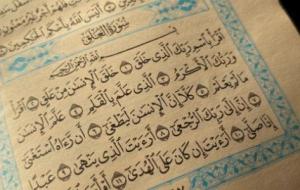 أَلَيْسَ ٱللَّهُ بِأَحْكَمِ ٱلْحَٰكِمِينَ
سُورَةُ العَلَقِ
بِسْمِ ٱللَّهِ ٱلرَّحْمَٰنِ ٱلرَّحِيمِ
ٱقْرَأْ بِٱسْمِ رَبِّكَ ٱلَّذِى خَلَقَ ١ خَلَقَ ٱلْإِنسَٰنَ مِنْ عَلَقٍ ٢ ٱقْرَأْ
وَرَبُّكَ ٱلْأَكْرَمُ ٣ ٱلَّذِى عَلَّمَ بِٱلْقَلَمِ ٤ عَلَّمَ ٱلْإِنسَٰنَ
مَا لَمْ يَعْلَمْ ٥ كَلَّآ إِنَّ ٱلْإِنسَٰنَ لَيَطْغَىٰٓ ٦ أَن رَّءَاهُ ٱسْتَغْنَىٰٓ
٧ إِنَّ إِلَىٰ رَبِّكَ ٱلرُّجْعَىٰٓ ٨ أَرَءَيْتَ ٱلَّذِى يَنْهَىٰ ٩ عَبْدًا
إِذَا صَلَّىٰٓ ١٠ أَرَءَيْتَ إِن كَانَ عَلَى ٱلْهُدَىٰٓ ١١ أَوْ